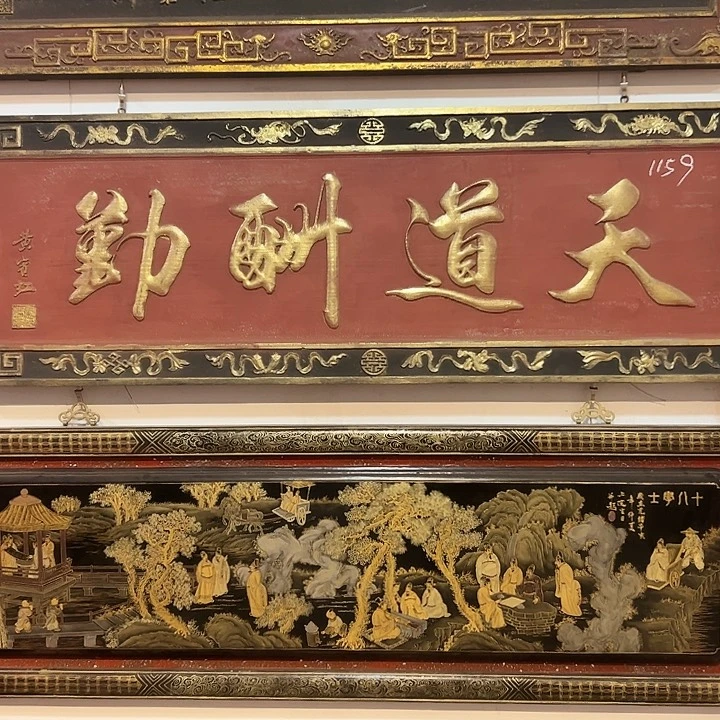 1159
天道酬勤
黄宾虹
十八學士